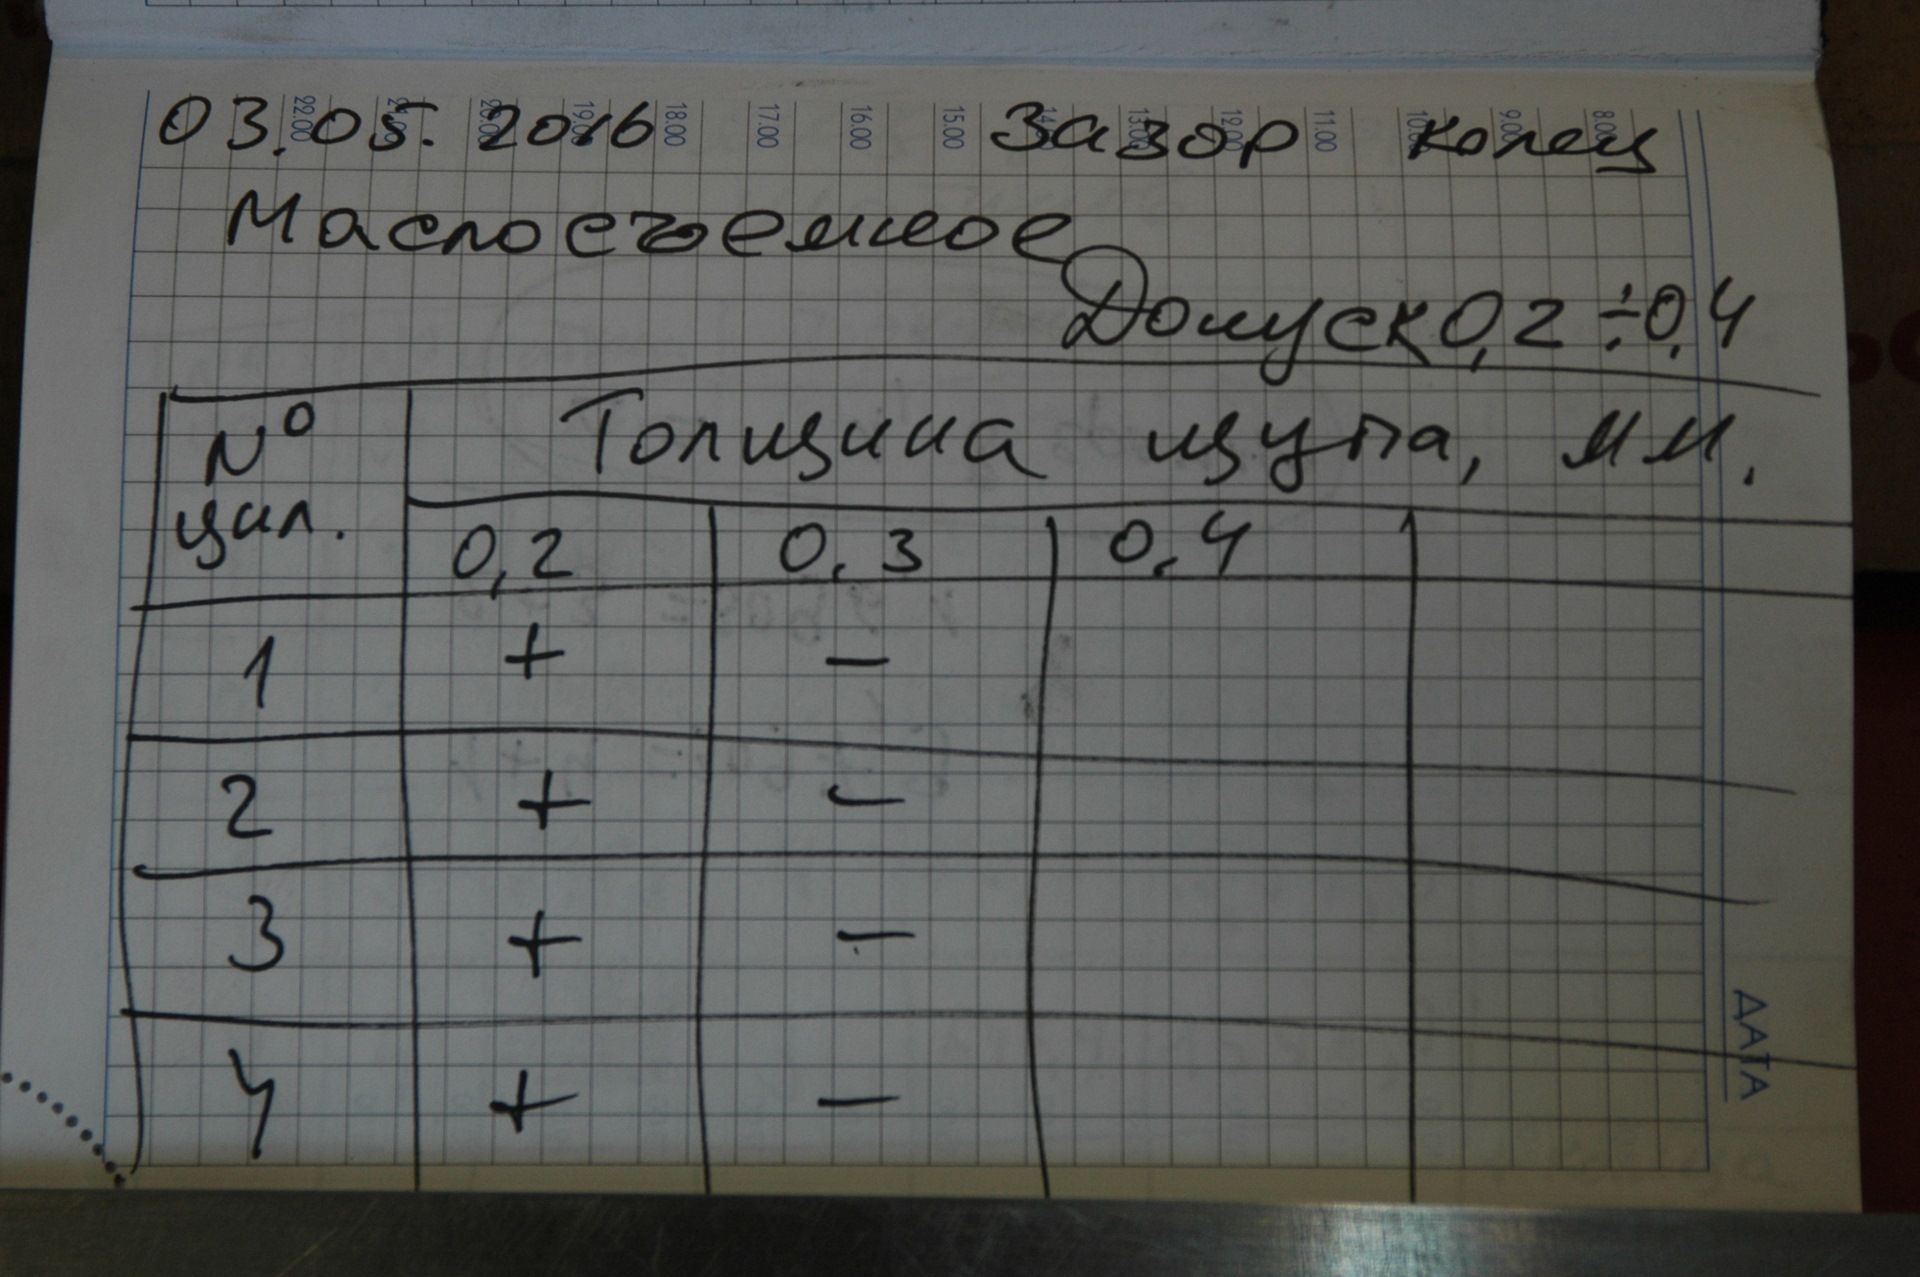 03.05.2016 Зазор колец
Маслосъемное
Допуск 0,2 ÷ 0,4
№ Толщина щупа, мм.
цил.
0,2 0,3 0,4
1 + -
2 + -
3 + -
4 + -
22.00 21.00 20.00 19.00 18.00 17.00 16.00 15.00 14.00 13.00 12.00 11.00 10.00 9.00 8.00
ДАТА